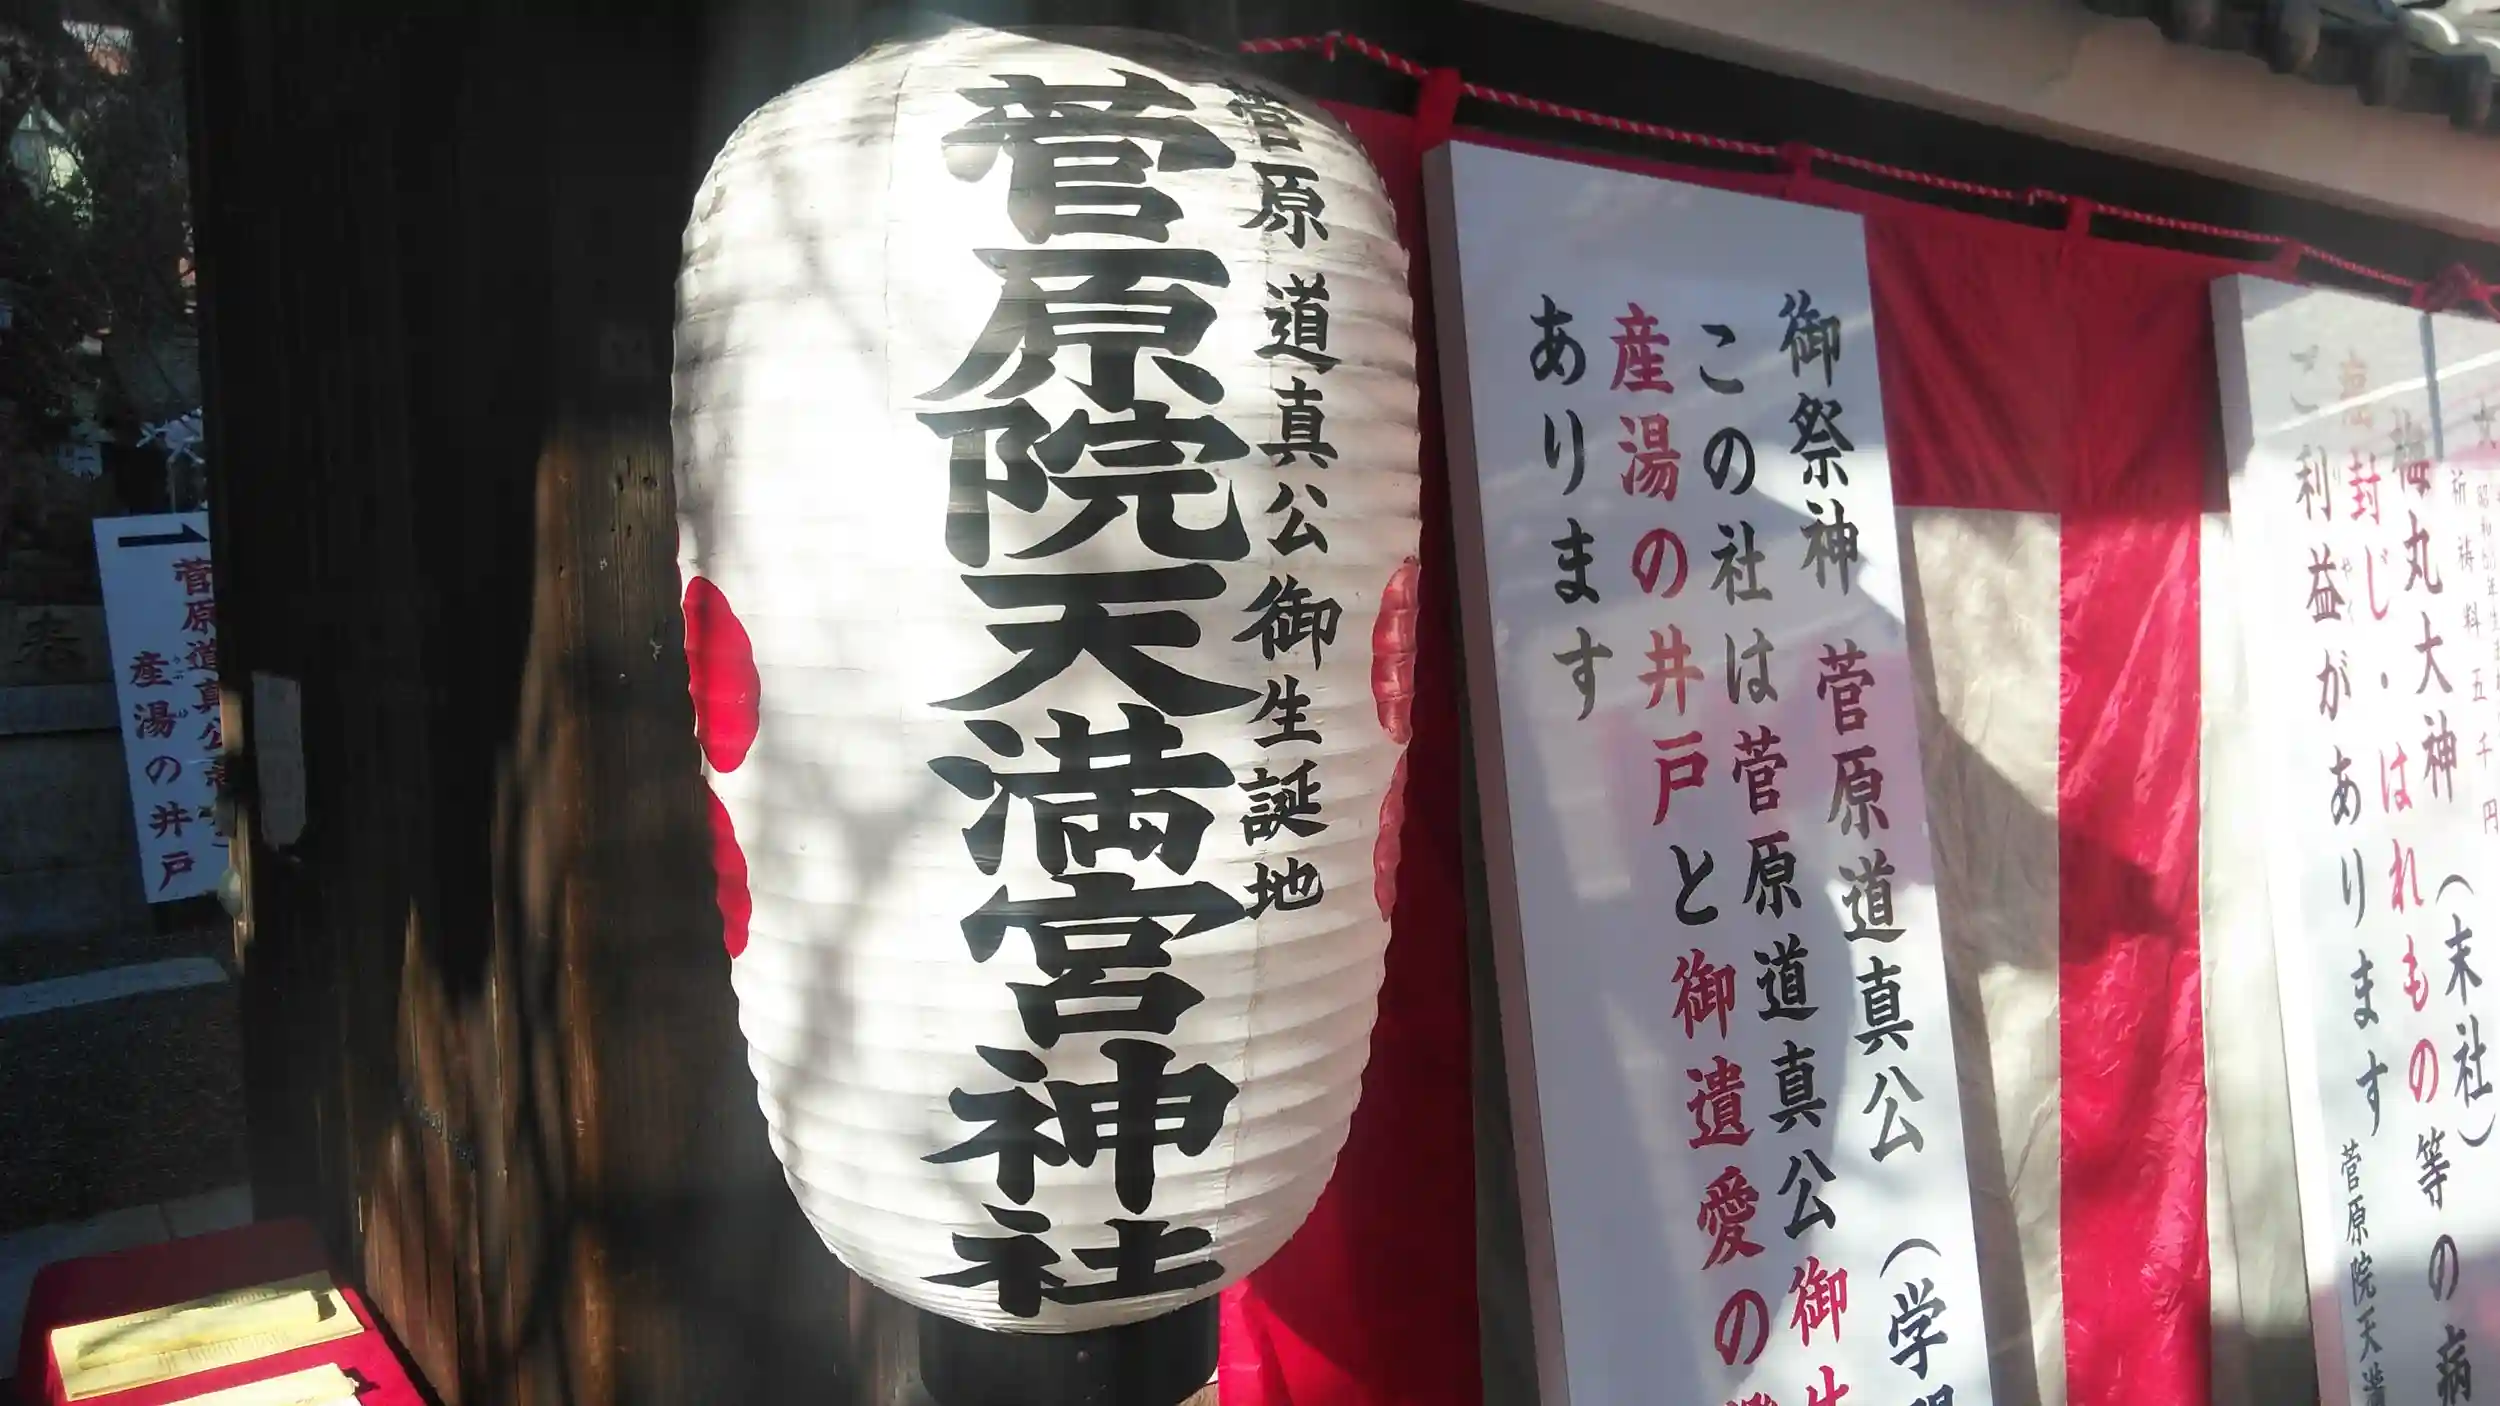 菅原道真公御生誕地
菅原院天満宮神社
御祭神 菅原道真公 (学
この社は菅原道真公御生
産湯の井戸と御遺愛の
あります
祈祷料五千円
梅丸大神 (末社) 等の病
封じ・はれもの
ご利益があります 菅原院天満
菅原道真公
産湯の井戸